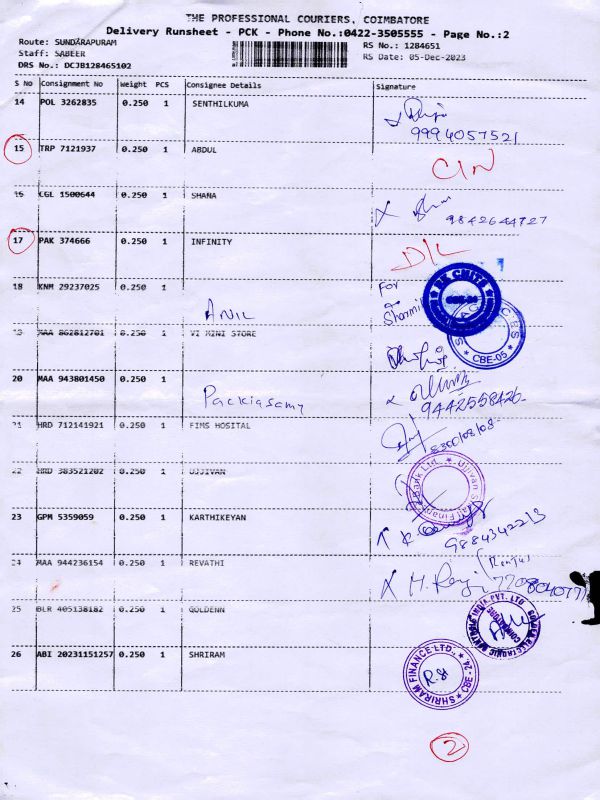 THE PROFESSIONAL COURIERS, COIMBATORE
Delivery Runsheet - PCK - Phone No.:0422-3505555 - Page No.:2
Route: SUNDARAPURAM
Staff: SABEER
DRS No.: DCJB128465102
RS No.: 1284651
RS Date: 05-Dec-2023
S No Consignment No Weight PCS Consignee Details Signature
14 POL 3262835 0.250 1 SENTHILKUMA
9994057521
15 TRP 7121937 0.250 1 ABDUL
CIN
16 CGL 1500644 0.250 1 SHANA
9842644727
17 PAK 374666 0.250 1 INFINITY
D/L
18 KNM 29237025 0.250 1
ANIL
For
CBE-05
19 MAA 862812701 0.250 1 VI MINI STORE
20 MAA 943801450 0.250 1
Packiasamy
9442558426
21 HRD 712141921 0.250 1 FIMS HOSITAL
22 HRD 383521202 0.250 1 UJJIVAN
23 GPM 5359059 0.250 1 KARTHIKEYAN
9884342213
24 MAA 944236154 0.250 1 REVATHI
25 BLR 405138182 0.250 1 GOLDENN
26 ABI 20231151257 0.250 1 SHRIRAM
SHRIRAM FINANCE LTD., CBE - 24
2